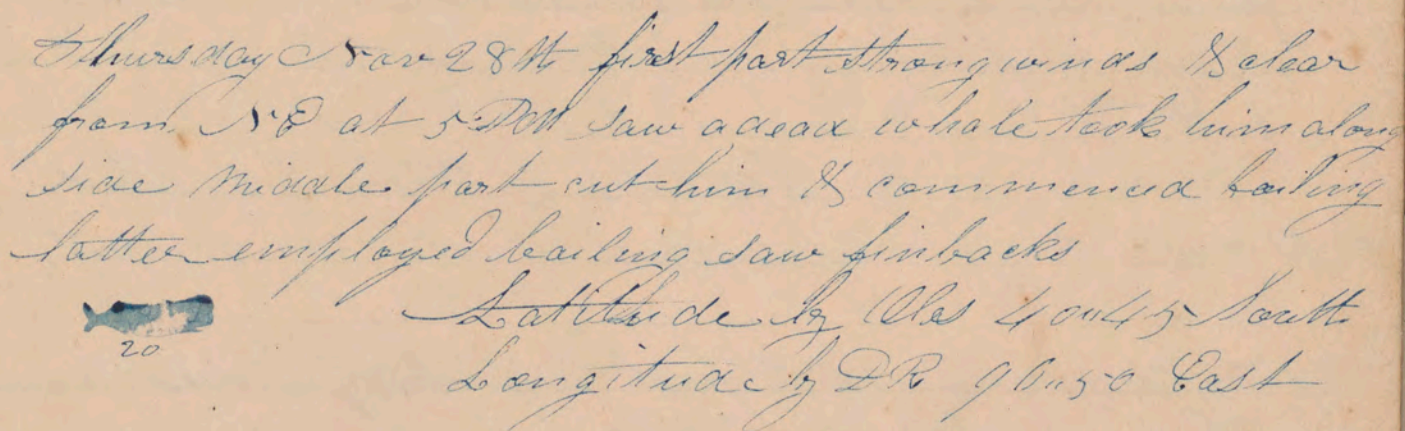 Thursday Nov 28th first part strong winds & clear
from NE at 5 PM saw a dead whale took him along
side middle part cut him & commenced boiling
latter employed boiling saw finbacks
Latitude by Obs 40"45 South
20
Longitude by DR 90"50 East